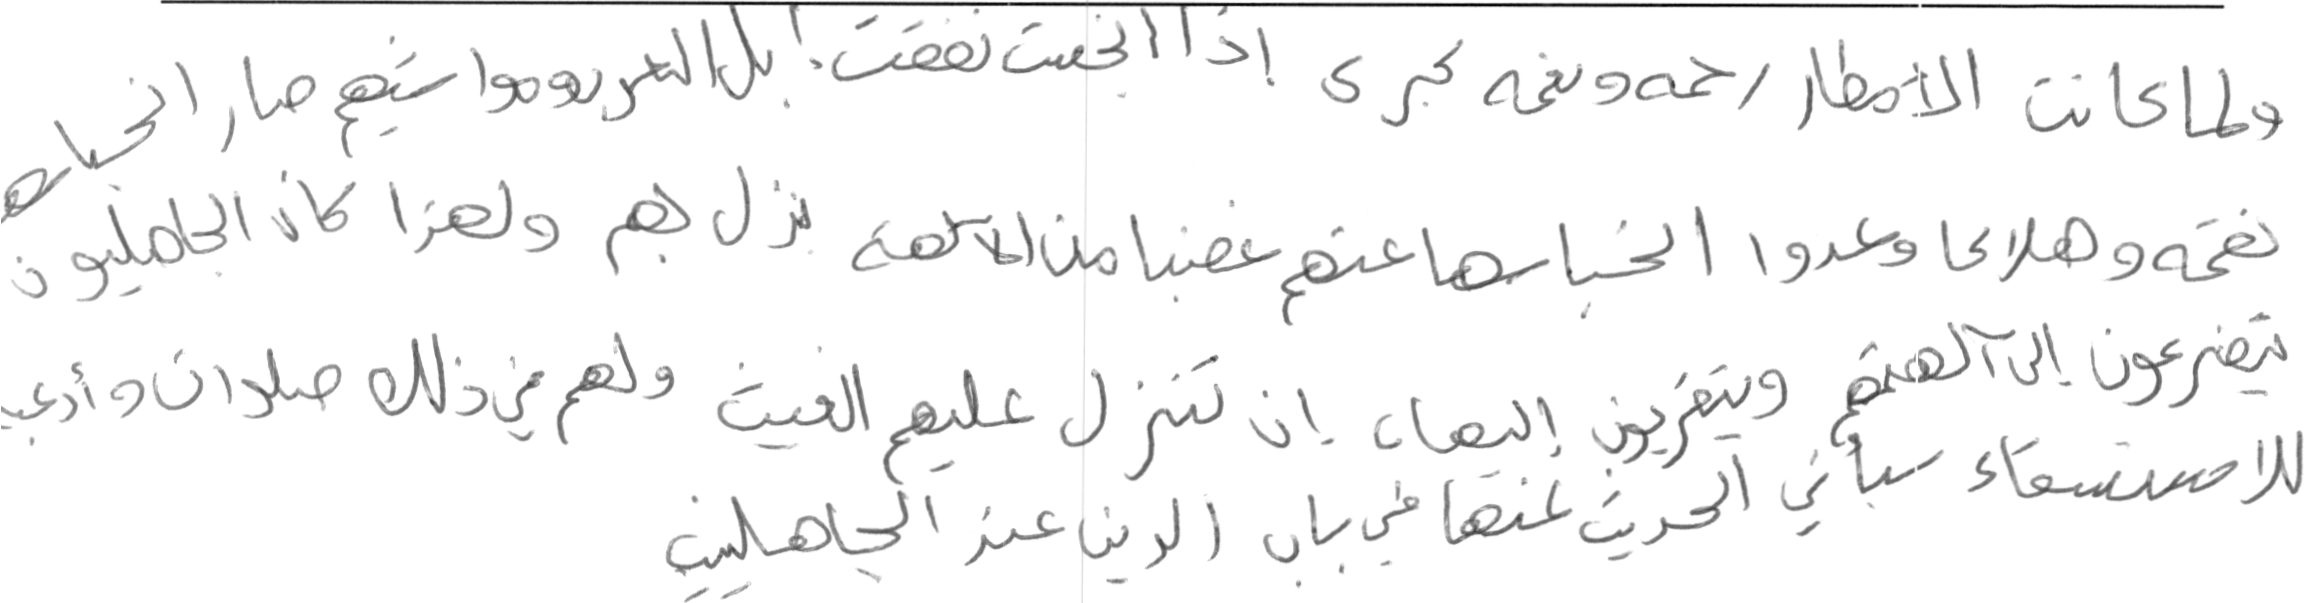 ولما كانت الأمطار رحمه ونعمه كبرى إذا انحبست نفقت إبل العرب ومواشيهم صار انحباسها
نقمه وهلاكا وعدوا انحباسها عنهم غضبا من الآلهة ينزل بهم ولهذا كان الجاهليون
يتضرعون إلى آلهتهم ويتقربون إليها، إن تنزل عليهم الغيث ولهم في ذلك صلوات وأدعية
للاستسقاء سيأتي الحديث عنها في باب الدين عند الجاهليين